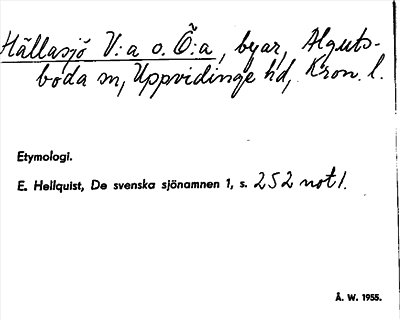 Hällasjö V:a o. Ö:a, byar, Alguts-
boda sn, Uppvidinge hd, Kron. l.
Etymologi.
E. Hellquist, De svenska sjönamnen 1, s. 252 not 1.
Å. W. 1955.